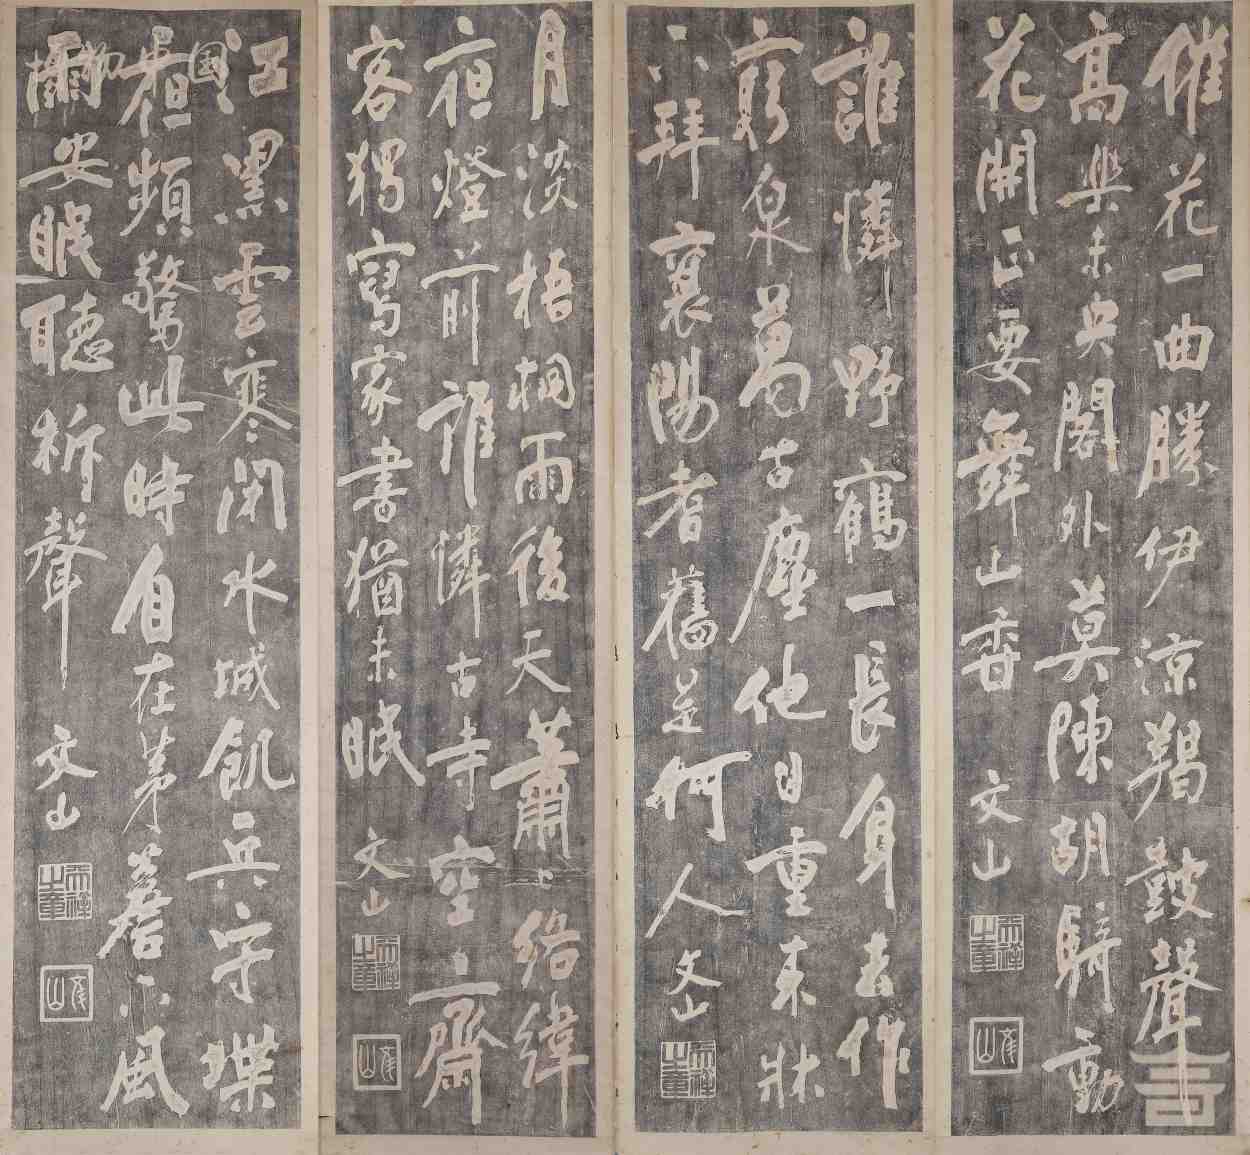 催花一曲勝伊涼羯鼓聲
高樂未央閣外莫陳胡騎動
花開正要舞山香 文山
天祥之章
文山
誰憐野鶴一長身去作
窮泉萬古塵他日重來牀
下拜襄陽耆舊是何人 文山
天祥之章
月淡梧桐雨後天蕭々絡緯
夜燈前誰憐古寺空齋
客獨寫家書猶未眠 文山
天祥之章
文山
江黑雲寒閉水城飢兵守堞
夜頻驚此時自在茅簷下風
安眠聽柝聲 文山
天祥之章
文山